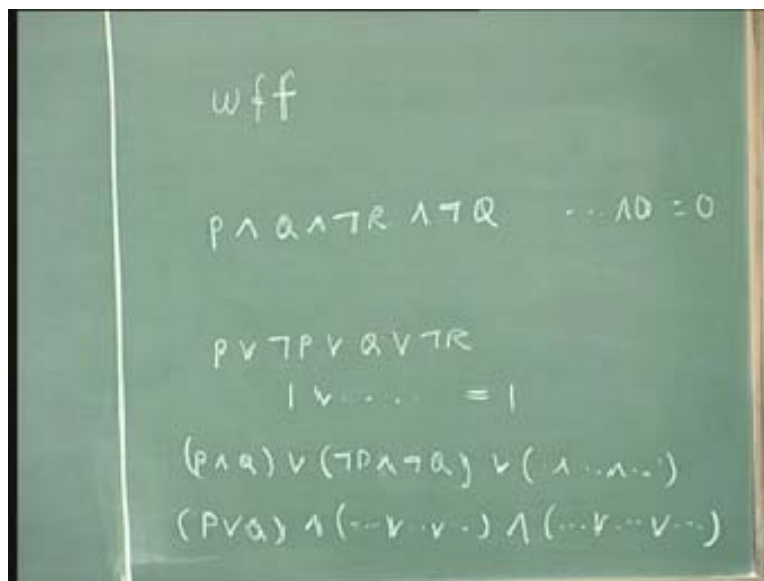 wff
P ∧ Q ∧ ¬R ∧ ¬Q ... ∧0 = 0
P ∨ ¬P ∨ Q ∨ ¬R
1 ∨ .... = 1
(P ∧ Q) ∨ (¬P ∧ ¬Q) ∨ ( ∧ .. ∧ .. )
(P ∨ Q) ∧ (... ∨ .. ∨ .) ∧ (... ∨ ... ∨ ...)